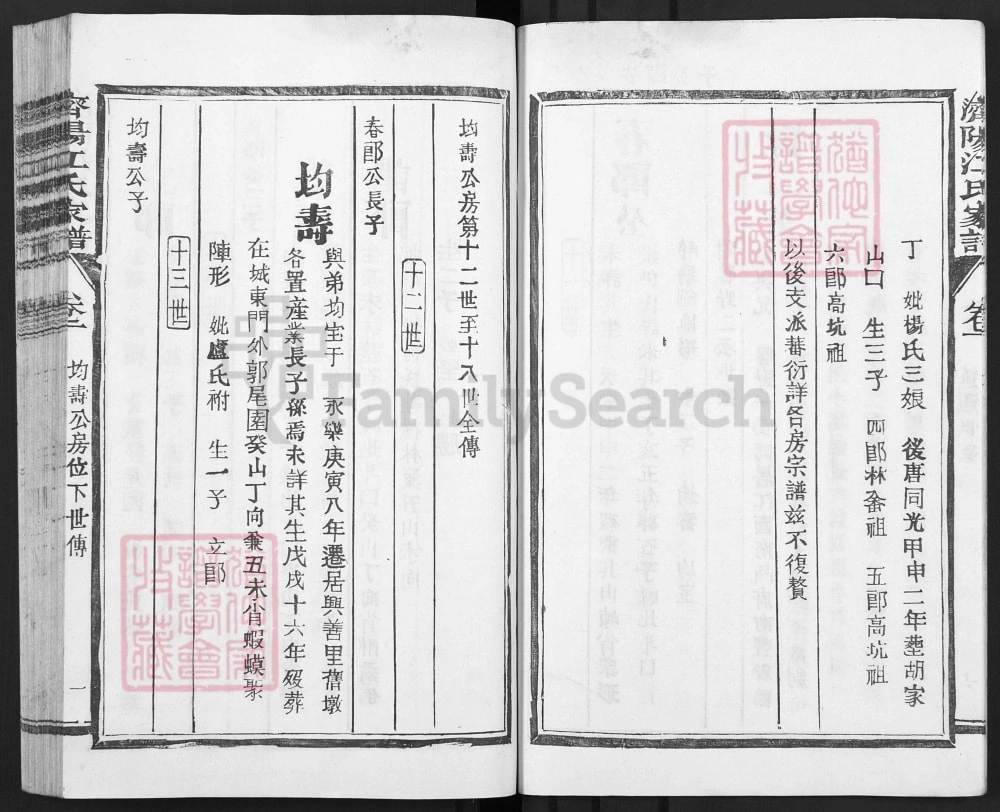 濟陽江氏家譜 卷一
丁 妣楊氏三娘 後唐同光甲申二年塟胡家
山口 生三子 四郎林畬祖 五郎高坑祖
六郎高坑祖
以後支派蕃衍詳各房宗譜兹不復贅
均壽公房第十二世至十八世全傳
十二世
春郎公長子
均壽 與弟均生于 永樂庚寅八年遷居興善里舊墩
各置産業長子孫焉未詳其生戊戌十六年歿葬
在城東門外郭尾園癸山丁向兼丑未肖蝦蟆聚
陣形 妣盧氏祔 生一子 立郎
十三世
均壽公子
濟陽江氏家譜 卷二 均壽公房位下世傳 一
猶他家譜學會珍藏
猶他家譜學會珍藏
FamilySearch